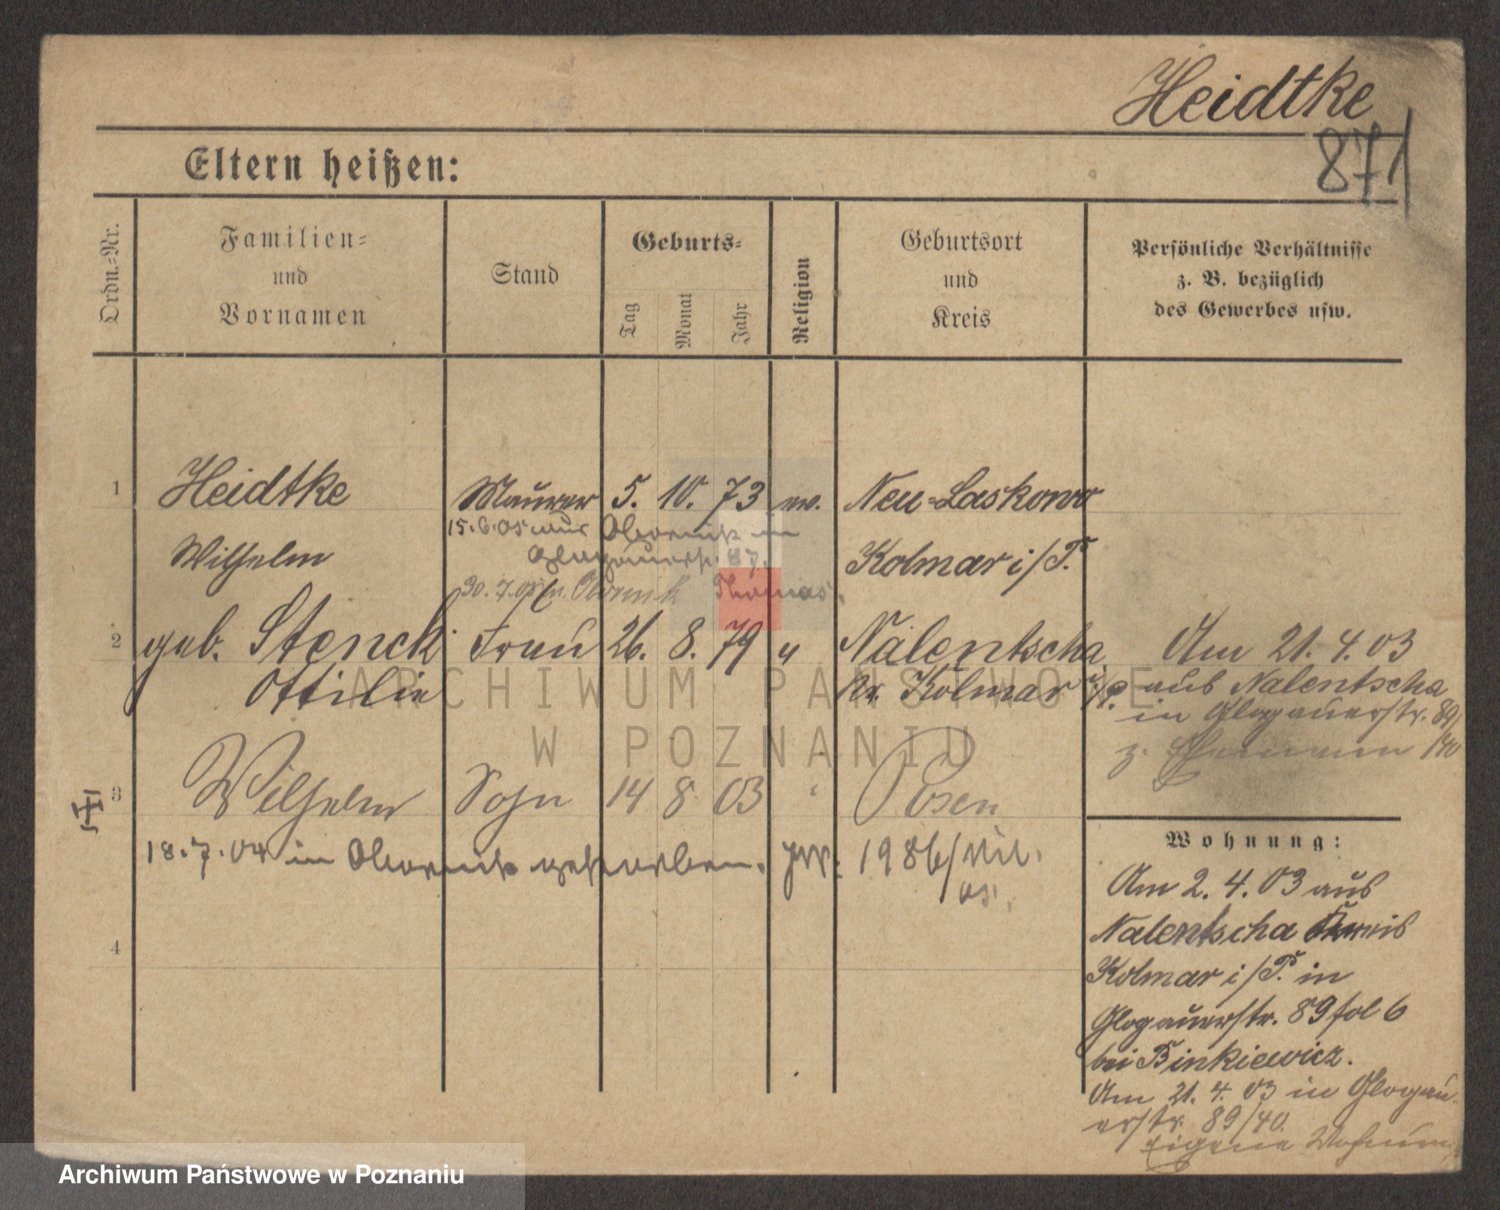 Heidtke
871
Eltern heißen:
Ordn.=Nr.
Familien=
und
Vornamen
Stand
Geburts=
Tag
Monat
Jahr
Religion
Geburtsort
und
Kreis
Persönliche Verhältnisse
z. B. bezüglich
des Gewerbes usw.
1 Heidtke Maurer 5. 10. 73 ev. Neu=Laskowo
15.6.05 aus Obornik in
Wilhelm Glogauerstr. 87. Kolmar i/P.
30.7.05 Obornik Thomas.
2 geb. Stenck Frau 26. 8. 79 " Nalentscha
Ottilie Kr. Kolmar i/P.
Am 21. 4. 03
aus Nalentscha
in Glogauerstr. 89/
z. 140
3 Wilhelm Sohn 14 8 03 " Posen
18.7.04 in Obornik gestorben. 1986/
05.
4
Wohnung:
Am 2. 4. 03 aus
Nalentscha Kreis
Kolmar i/P. in
Glogauerstr. 89 fol 6
bei Binkiewicz.
Am 21. 4. 03 in Glogau-
erstr. 89/40.
Eigene Wohnung
ARCHIWUM PAŃSTWOWE
W POZNANIU
Archiwum Państwowe w Poznaniu